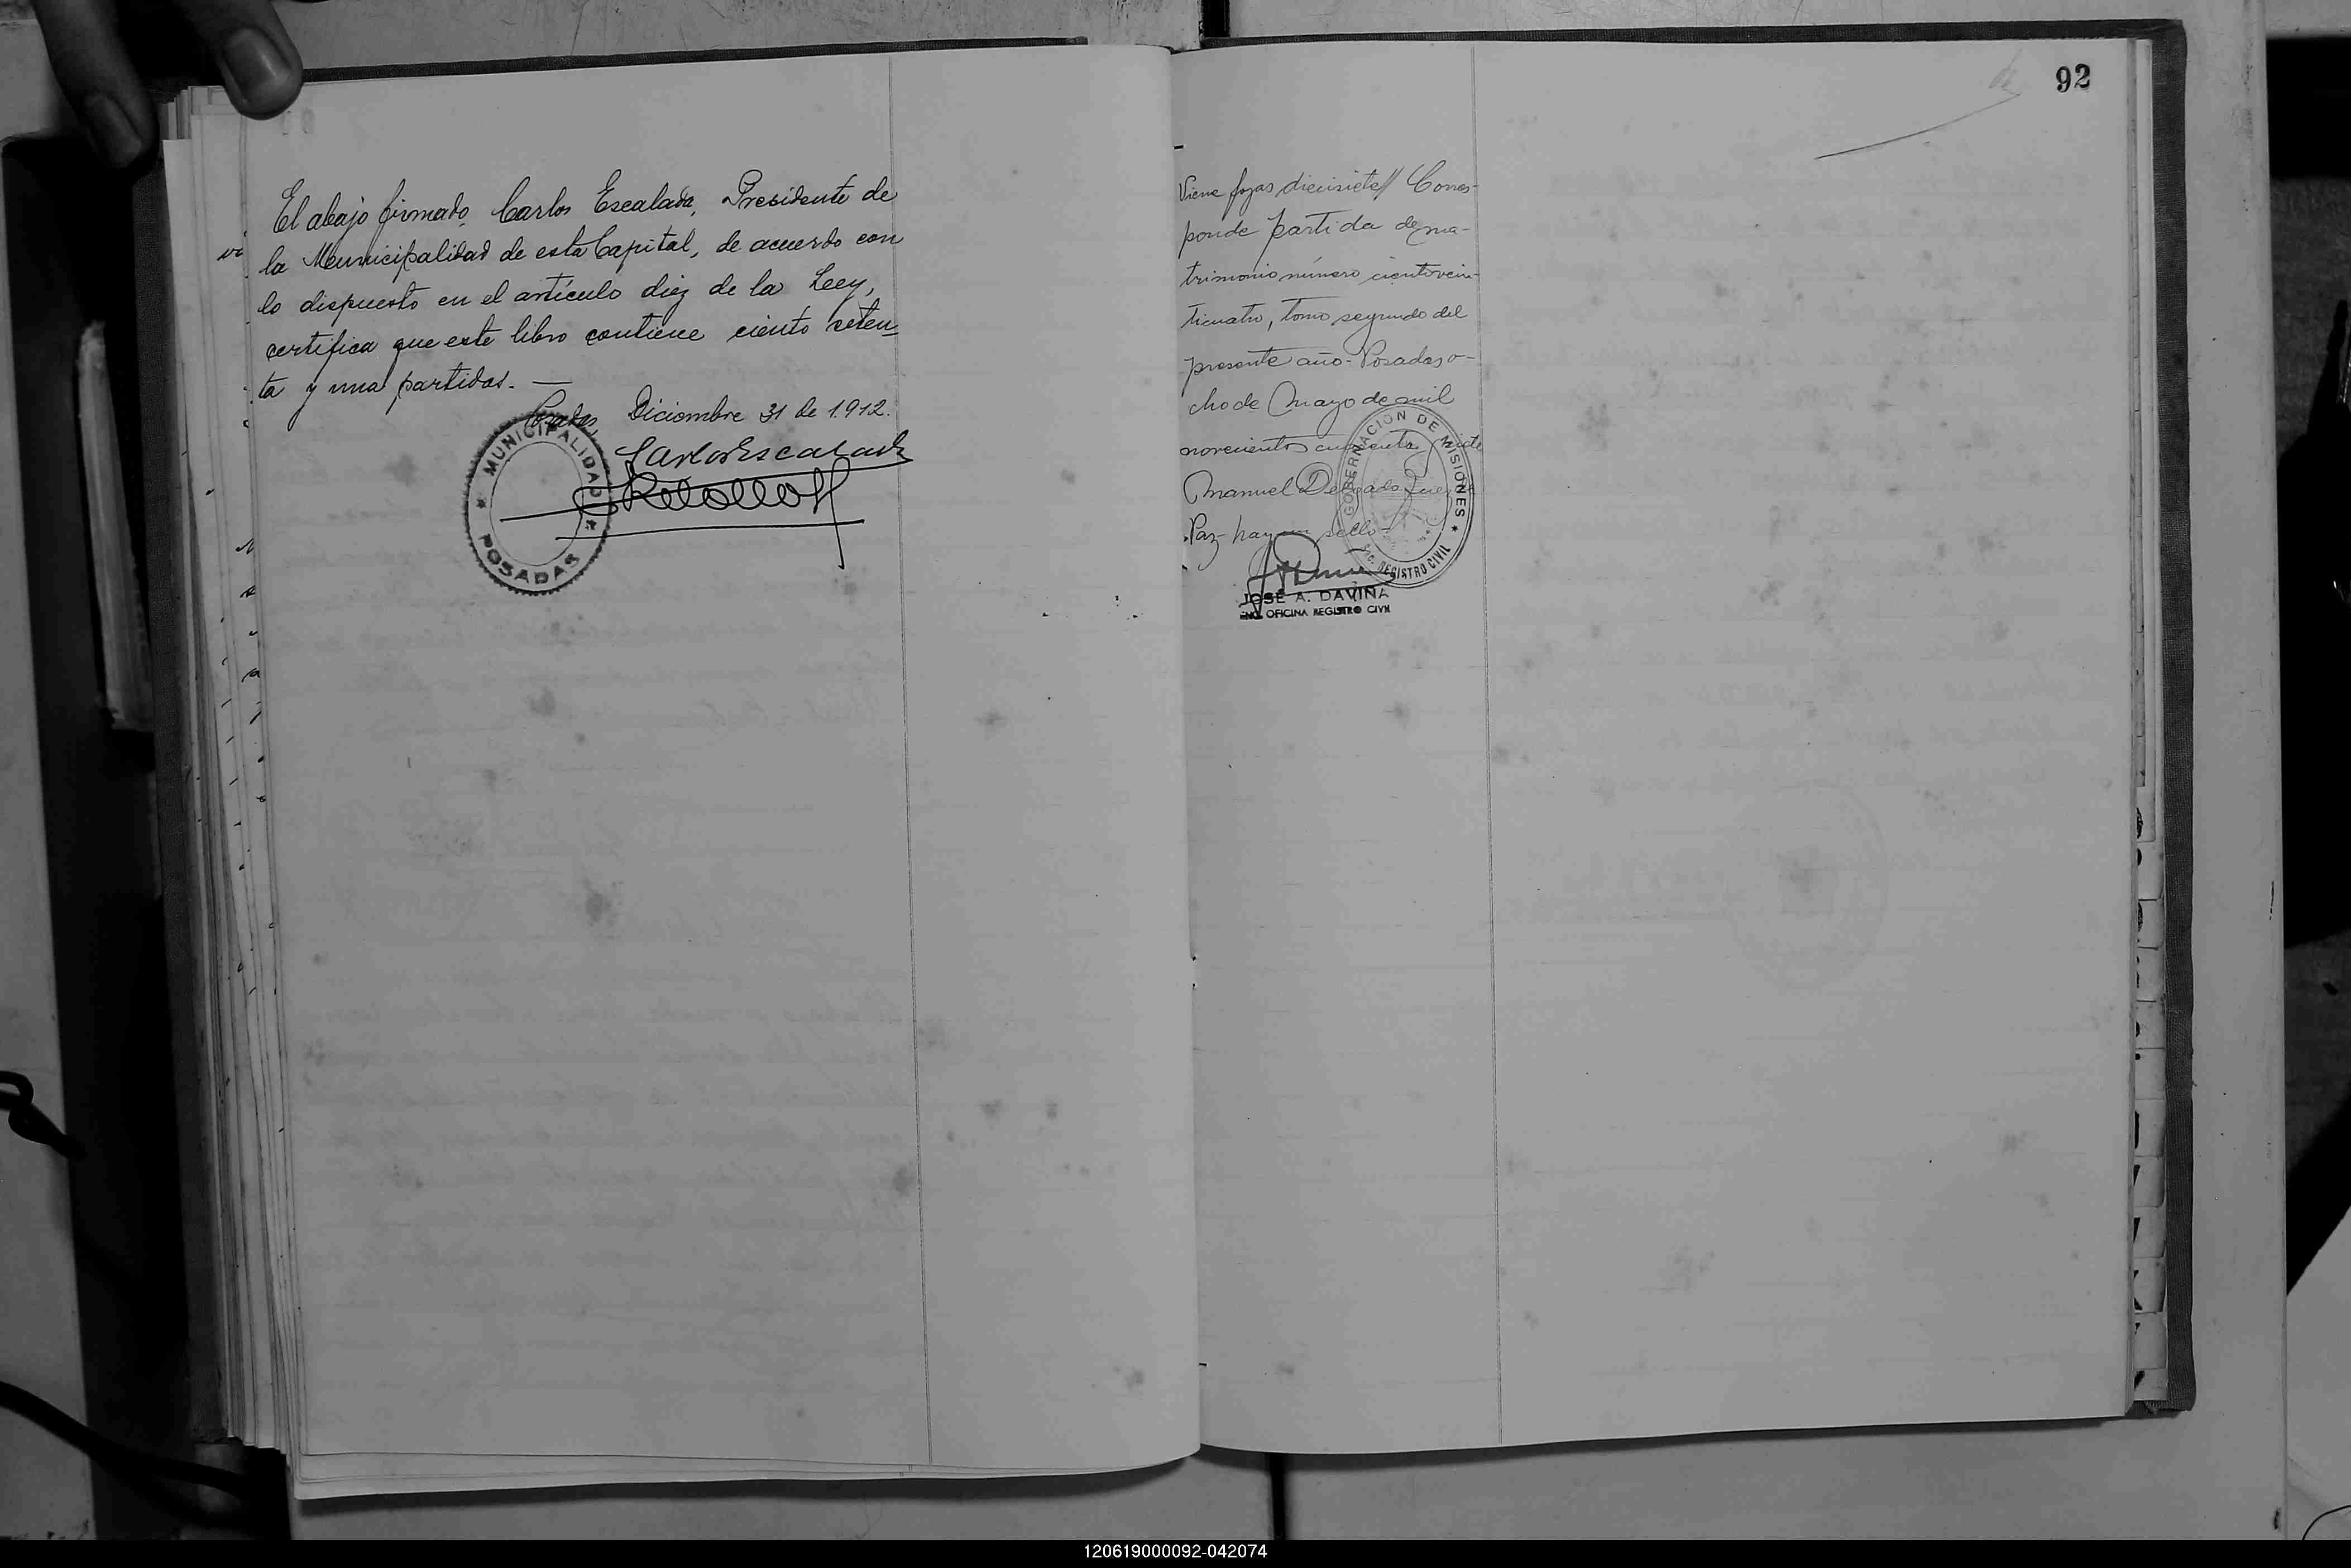 El abajo firmado, Carlos Escalada, Presidente de
la Municipalidad de esta Capital, de acuerdo con
lo dispuesto en el artículo diez de la Ley,
certifica que este libro contiene ciento seten_
ta y una partidas. —
Posadas, Diciembre 31 de 1.912.
Carlos Escalada
MUNICIPALIDAD
POSADAS
92
Viene fojas diecisiete// Corres-
ponde partida de ma-
trimonio número cientovein-
ticuatro, tomo segundo del
presente año- Posadas o-
cho de Mayo de mil
novecientos cincuenta y siete
Manuel Delgado Juez
Paz- hay un sello-
GOBERNACION DE MISIONES
REGISTRO CIVIL
JOSÉ A. DAVIÑA
ENC. OFICINA REGISTRO CIVIL
120619000092-042074